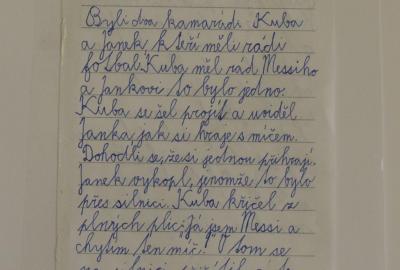 Byli dva kamarádi Kuba
a Janek kteří měli rádi
fotbal. Kuba měl rád Messiho
a Jankovi to bylo jedno.
Kuba se šel projít a uviděl
Janka, jak si hraje s míčem.
Dohodli se, že si jednou přihrají.
Janek vykopl, jenomže to bylo
přes silnici. Kuba křičel z
plných plic: "Já jsem Messi a
chytím ten míč." V tom se
na silnici